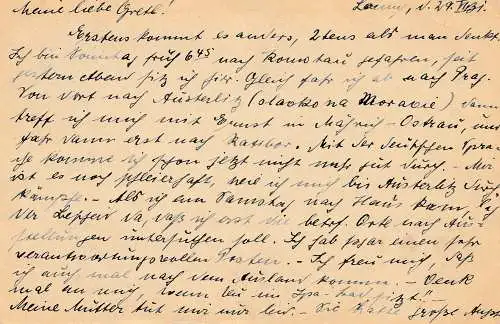 Meine liebe Gretl! Laun, d. 24. VI 31.
Erstens kommt es anders, 2tens als man denkt.
Ich bin Sonntag früh 6 45 nach Komotau gefahren, seit
gestern Abend sitz ich hier. Gleich fahr ich ab nach Prag.
Von dort nach Austerlitz (slavkov na Moravie) dann
treff ich mich mit Ernst in Mährisch-Ostrau, und
fahr dann erst nach Ratibor. Mit der deutschen Spra-
che komme ich schon jetzt nicht mehr gut durch. - Mir
ist es noch schleierhaft, wie ich mich bis Austerlitz durch
kämpfe. - Als ich am Samstag nach Haus kam,
der da, daß ich erst die betref. Orte nach Aus-
stellungen untersuchen soll. Ich hab sogar einen sehr
verantwortungsvollen Posten. - Ich freu mich, daß
ich auch mal nach dem Ausland komme. - Denk
mal an mich, wenn Du im sitzt! -
Meine Mutter tut mir nur leid. - Die hatte große Angst